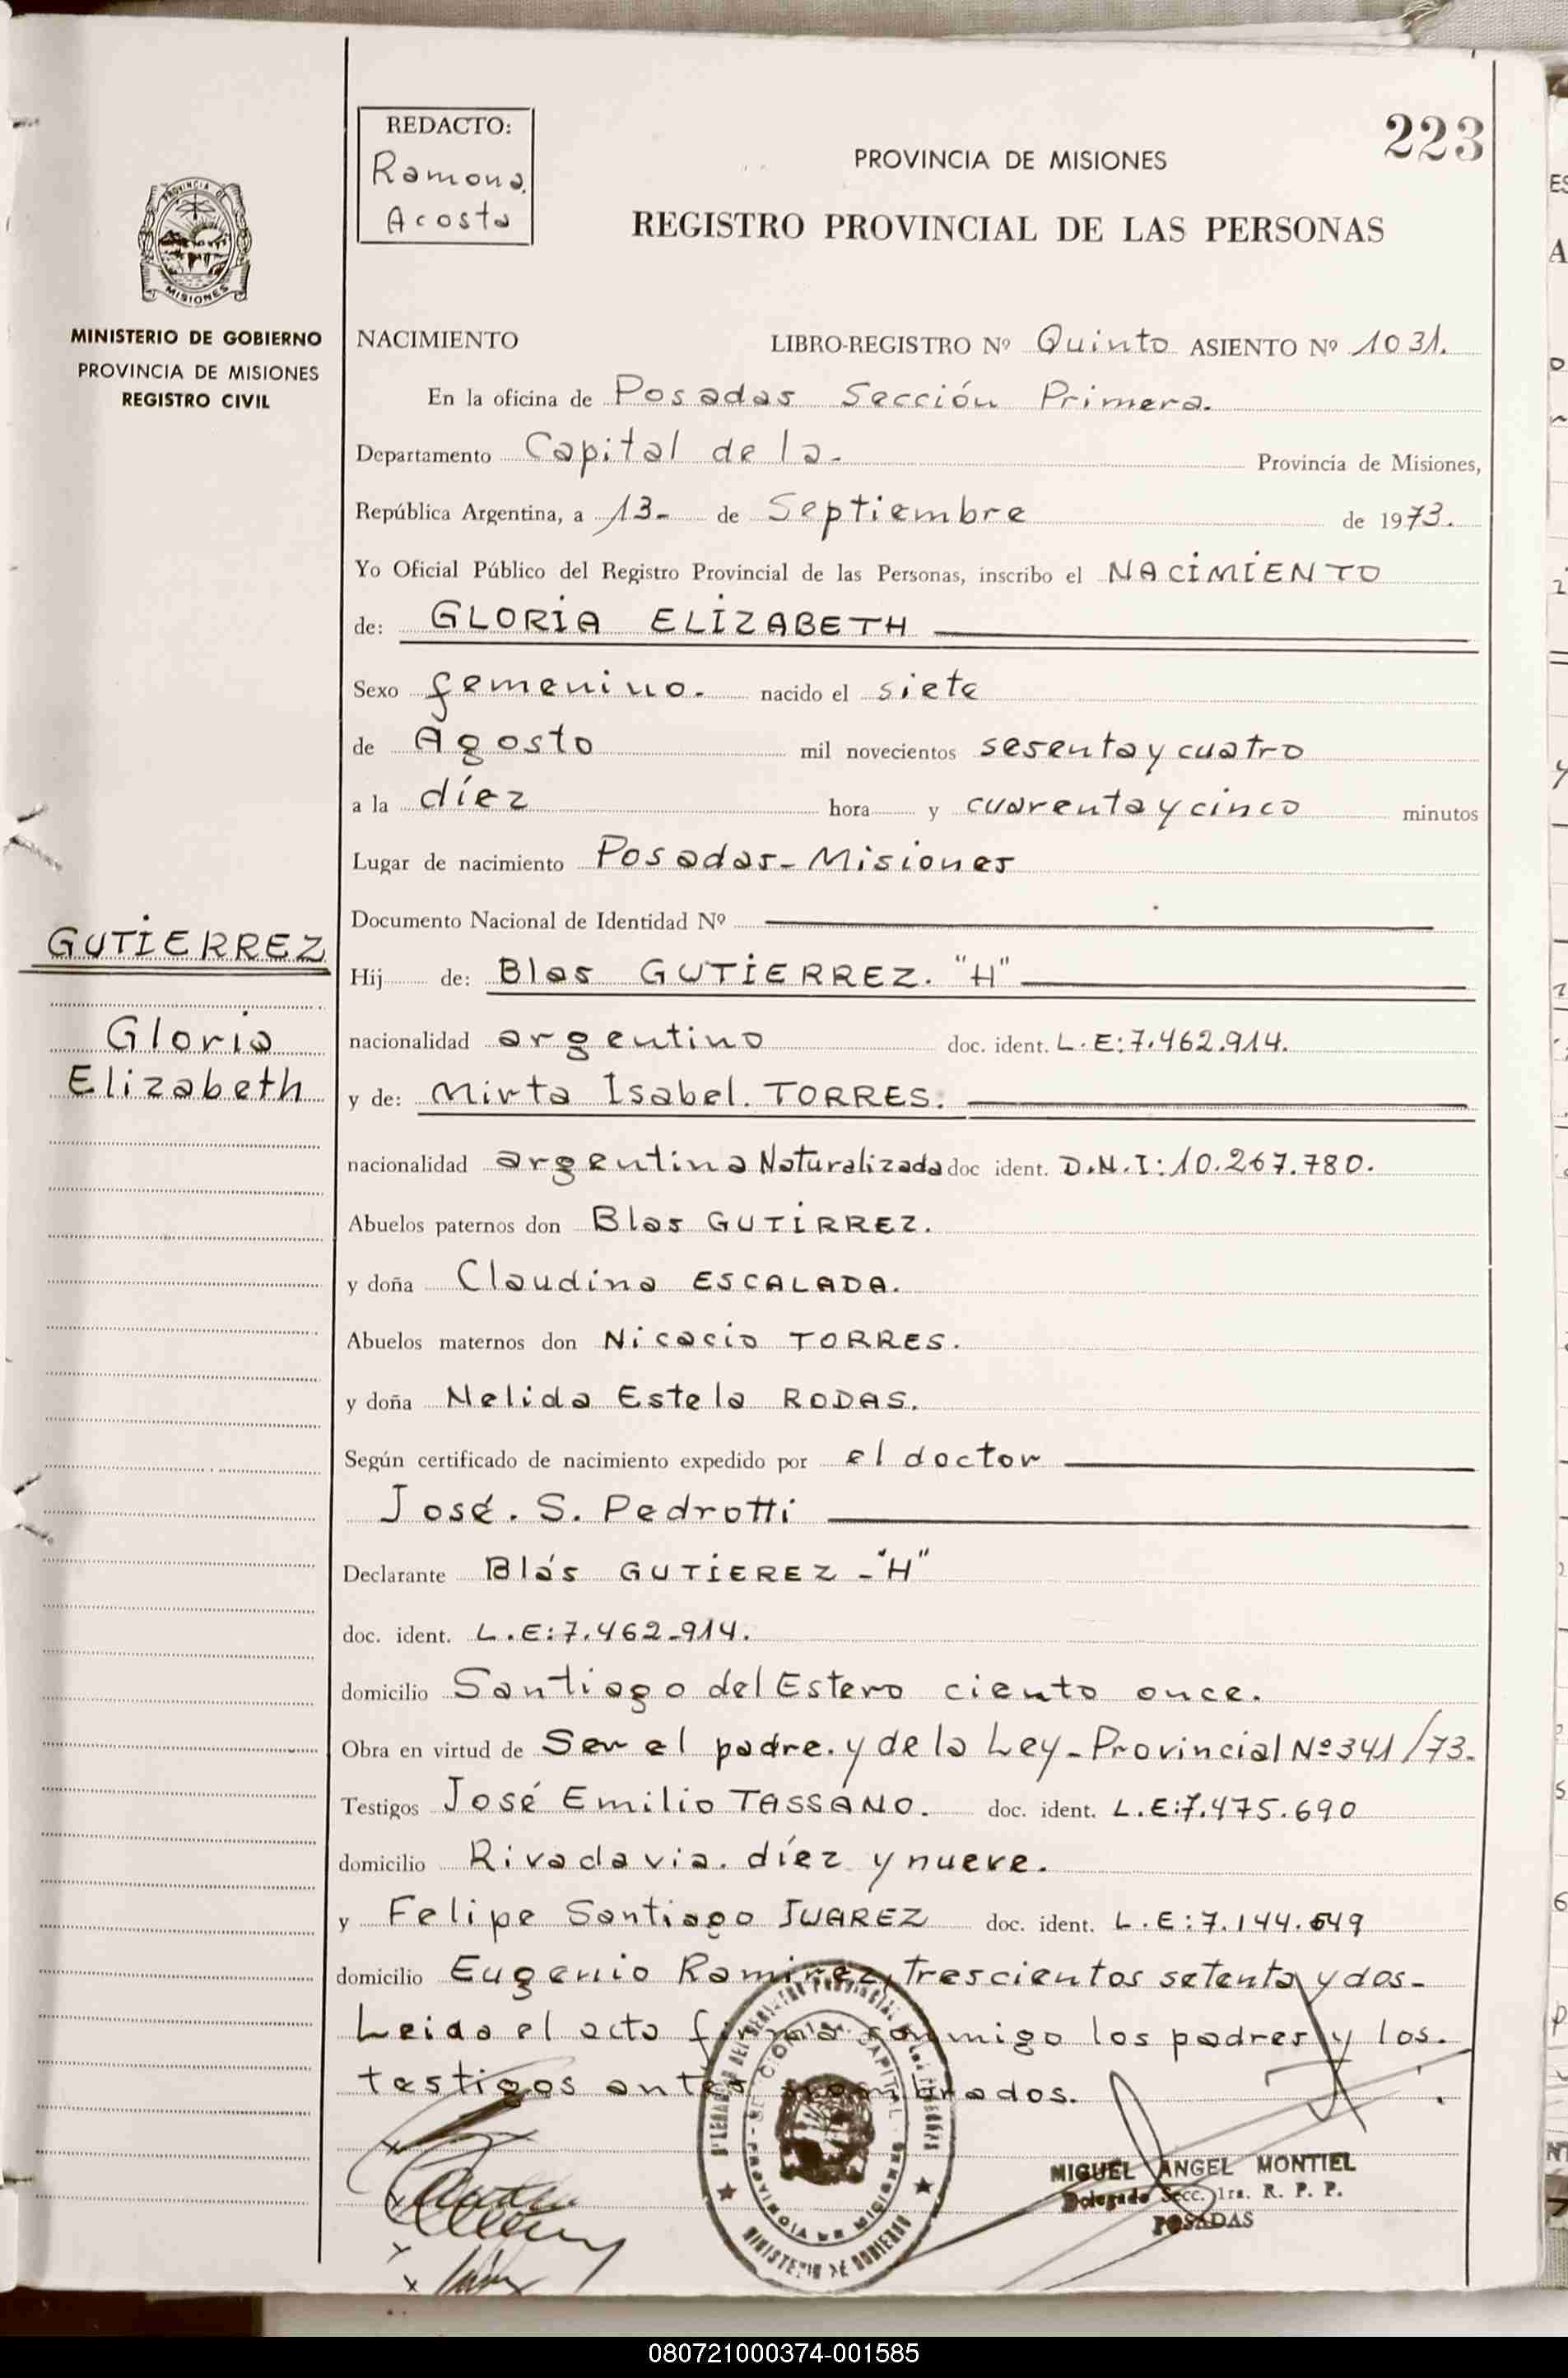 223
REDACTO:
Ramona
Acosta
PROVINCIA DE MISIONES
REGISTRO PROVINCIAL DE LAS PERSONAS
PROVINCIA DE
MISIONES
MINISTERIO DE GOBIERNO
PROVINCIA DE MISIONES
REGISTRO CIVIL
NACIMIENTO LIBRO-REGISTRO Nº Quinto ASIENTO Nº 1031.
En la oficina de Posadas Sección Primera.
Departamento Capital de la. Provincia de Misiones,
República Argentina, a 13- de Septiembre de 1973.
Yo Oficial Público del Registro Provincial de las Personas, inscribo el NACIMIENTO
de: GLORIA ELIZABETH
Sexo femenino. nacido el siete
de Agosto mil novecientos sesenta y cuatro
a la díez hora y cuarenta y cinco minutos
Lugar de nacimiento Posadas-Misiones
Documento Nacional de Identidad Nº
GUTIERREZ
Gloria
Elizabeth
Hij de: Blas GUTIERREZ. "H"
nacionalidad argentino doc. ident. L.E:7.462.914.
y de: Mirta Isabel. TORRES.
nacionalidad argentina Naturalizada doc ident. D.N.I:10.267.780.
Abuelos paternos don Blas GUTIRREZ.
y doña Claudina ESCALADA.
Abuelos maternos don Nicacio TORRES.
y doña Nelida Estela RODAS.
Según certificado de nacimiento expedido por el doctor
José. S. Pedrotti
Declarante Blás GUTIEREZ -"H"
doc. ident. L.E:7.462-914.
domicilio Santiago del Estero ciento once.
Obra en virtud de Ser el padre. y de la Ley-Provincial Nº341/73.
Testigos José Emilio TASSANO. doc. ident. L.E:7.475.690
domicilio Rivadavia. díez y nueve.
y Felipe Santiago JUAREZ doc. ident. L.E:7.144.649
domicilio Eugenio Ramirez, Trescientos setenta y dos-
Leida el acta firman conmigo los padres y los.
testigos antes nombrados.
MIGUEL ANGEL MONTIEL
Delegado Secc. 1ra. R. P. P.
POSADAS
MINISTERIO DE GOBIERNO
080721000374-001585